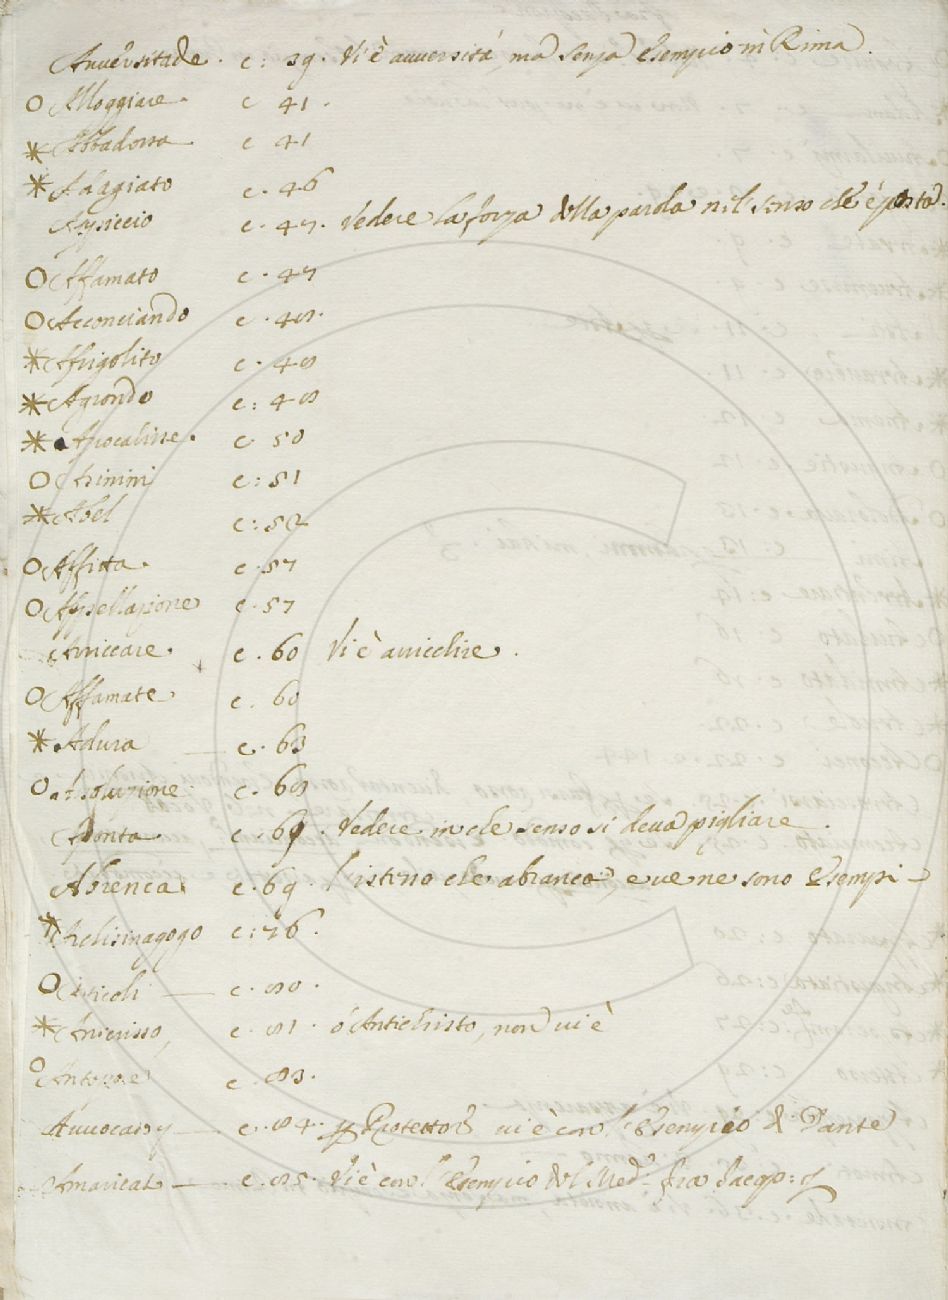 Avversitade. c: 39. Vi è avversità, ma senza Esempio in Rima.
O Alloggiare. c 41.
* Abbadessa c 41
* Adagiato c. 46
Apiccio c. 47. Vedere la forza della parola nel senso che è posta.
O Affamato c. 47
O Acconciando c. 48.
* Affrigolito c. 48
* Agrondo c: 48
* Apocalisse. c. 50
O Arimini c: 51
* Abel c: 52
O Affitta. c. 57
O Appellazione c. 57
Arriccare. c. 60 Vi è arricchire.
O Affamate. c. 60
* Adura c. 63
O Assoluzione c. 68
Aponta c. 69. Vedere in che senso si deva pigliare.
Abrenca c. 69. l'istesso che abranca, e ve ne sono Esempi
* Archisinagogo c: 76.
O Articoli c. 80.
* Anticristo, c. 81. ò Antichristo, non vi è
O c. 83.
Avvocato c. 84. p Protettore vi è con l'Esempio di Dante
Amaricato c. 85. Vi è con l'Esempio del Med.o fra Jacop: